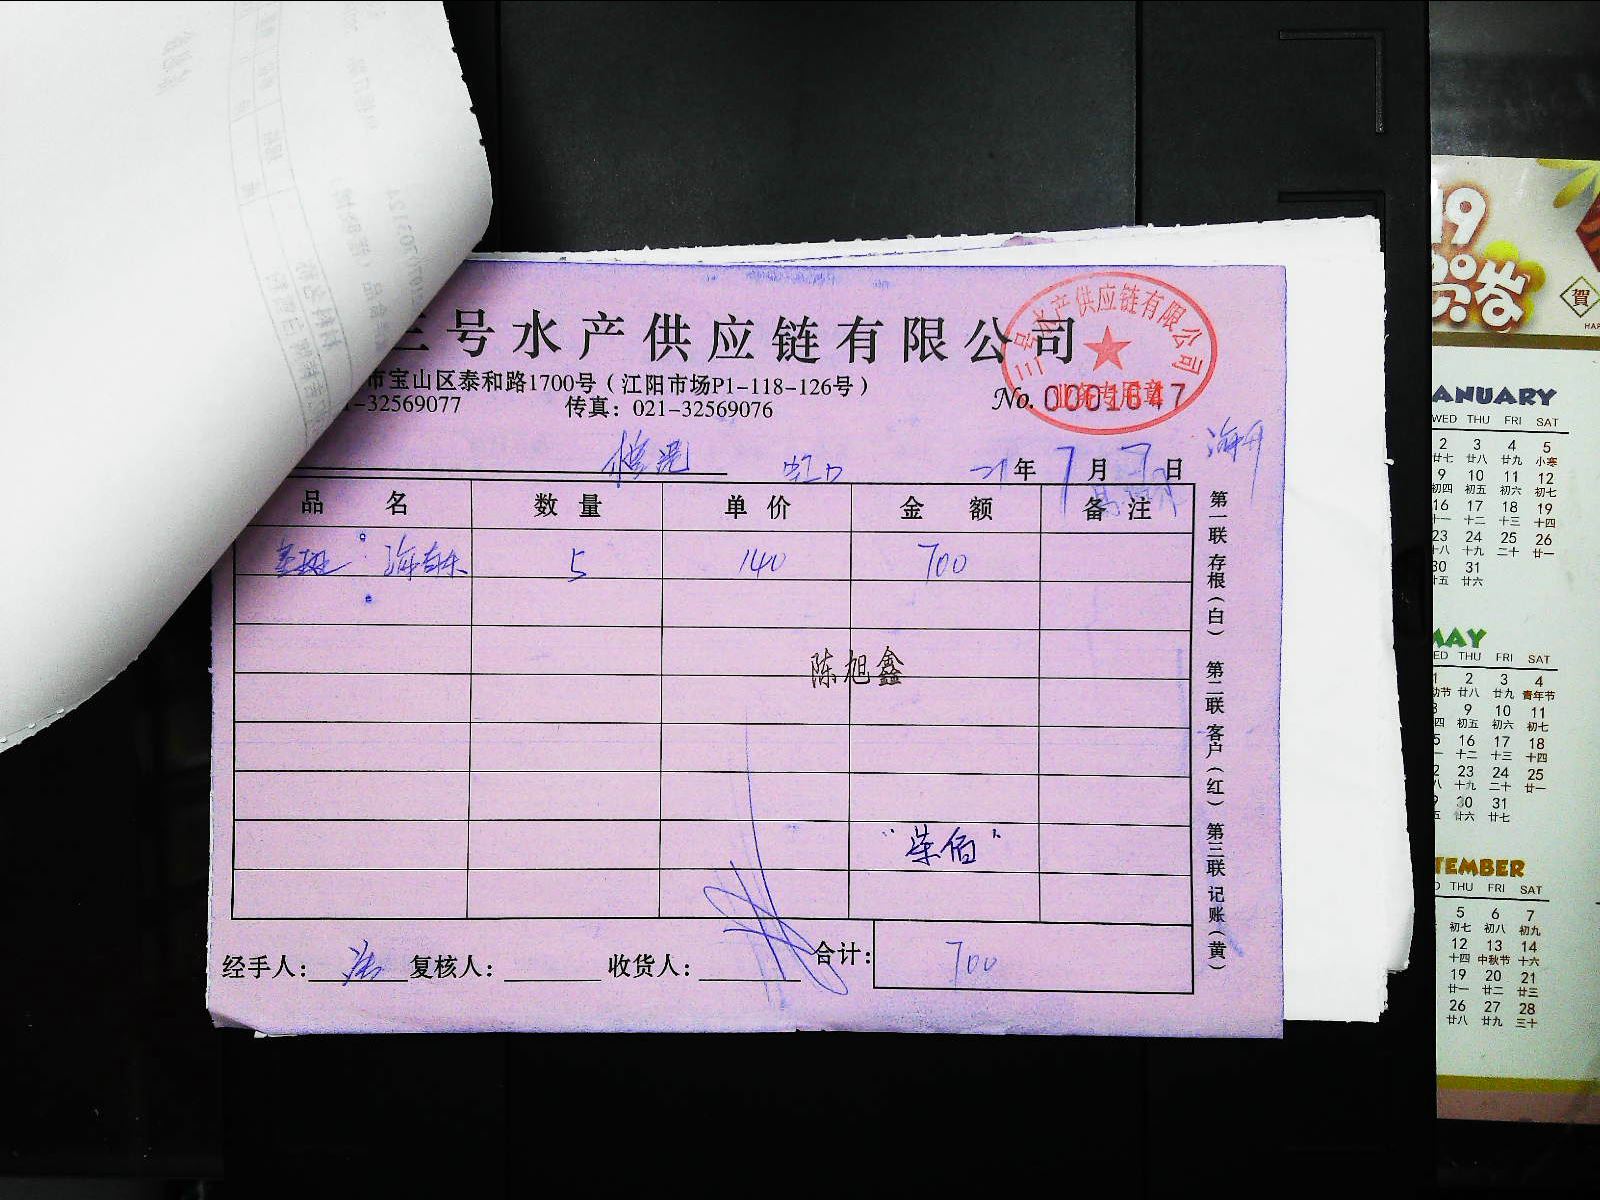 三号水产供应链有限公司
市宝山区泰和路1700号（江阳市场P1-118-126号）
-32569077 传真：021-32569076
三号水产供应链有限公司
业务专用章
No. 0001647
虹口 21年7月7日
品名 数量 单价 金额 备注
5 140 700
陈旭鑫
"柒佰"
经手人： 复核人： 收货人： 合计： 700
第一联 存根（白） 第二联 客户（红） 第三联 记账（黄）
19
賀
ANUARY
WED THU FRI SAT
2 3 4 5
廿七 廿八 廿九 小寒
9 10 11 12
初四 初五 初六 初七
16 17 18 19
十一 十二 十三 十四
23 24 25 26
十八 十九 二十 廿一
30 31
廿五 廿六
MAY
ED THU FRI SAT
1 2 3 4
动节 廿八 廿九 青年节
8 9 10 11
四 初五 初六 初七
5 16 17 18
十二 十三 十四
2 23 24 25
八 十九 二十 廿一
9 30 31
五 廿六 廿七
TEMBER
D THU FRI SAT
5 6 7
初七 初八 初九
12 13 14
十四 中秋节 十六
19 20 21
廿一 廿二 廿三
26 27 28
廿八 廿九 三十